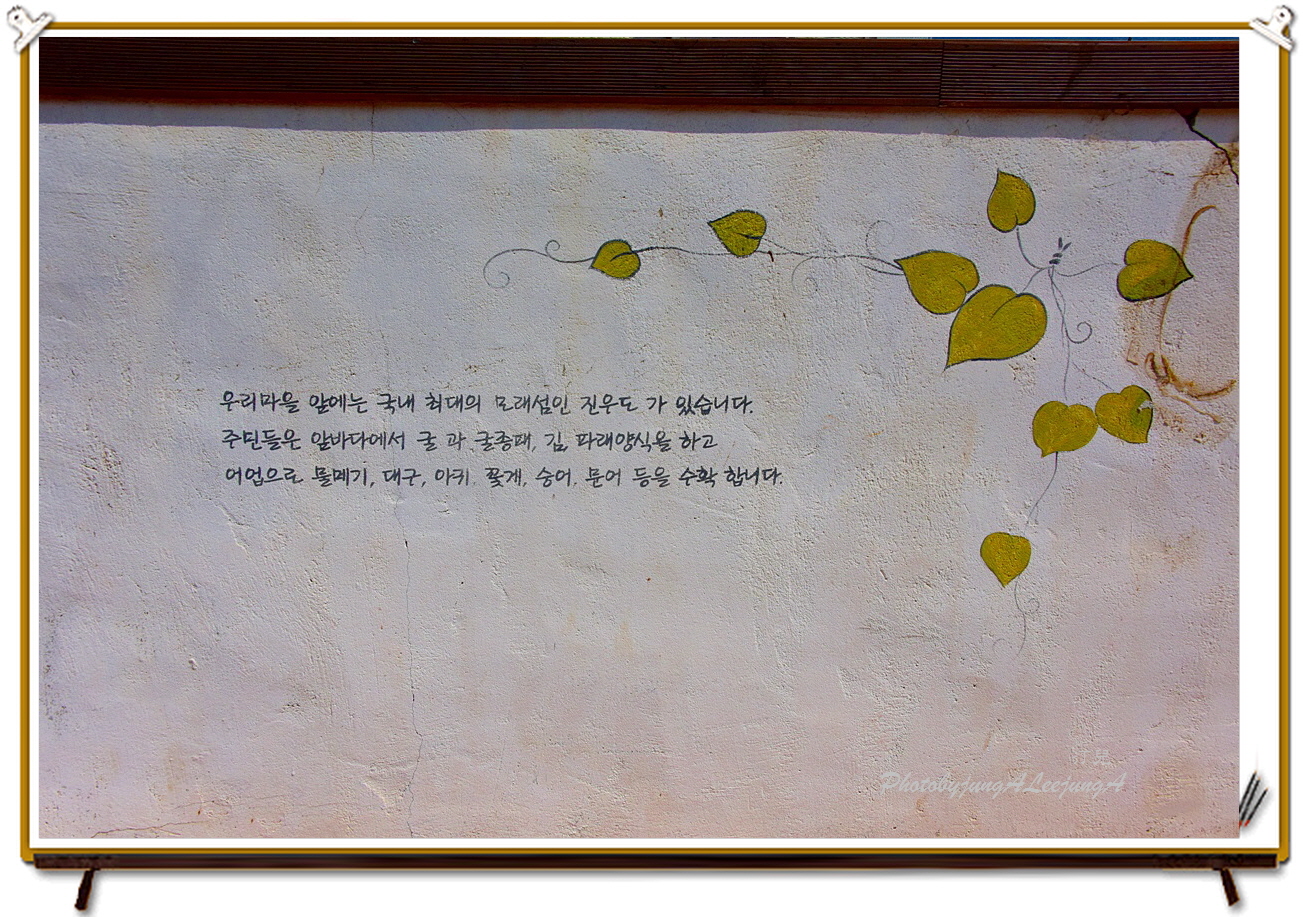 우리마을 앞에는 국내 최대의 모래섬인 진우도 가 있습니다.
주민들은 앞바다에서 굴 과 굴종패, 김, 파래양식을 하고
어업으로 물메기, 대구, 아귀, 꽃게, 숭어, 문어 등을 수확 합니다.
PhotobyjungALeejungA